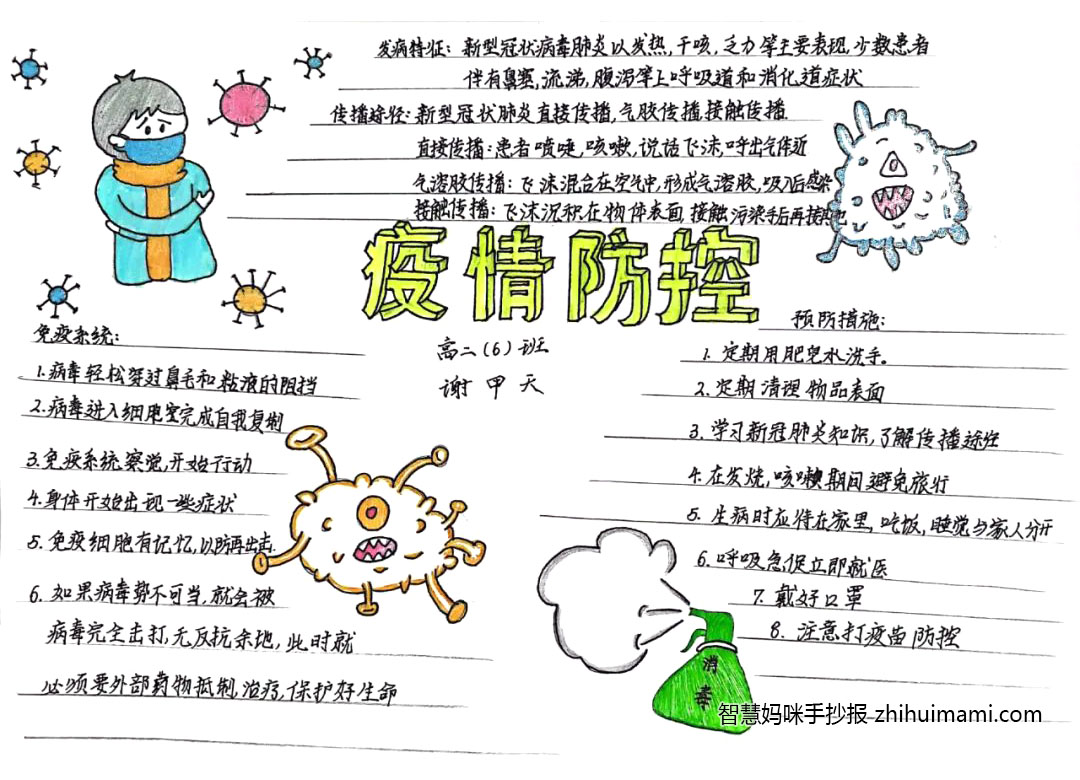 发病特征：新型冠状病毒肺炎以发热，干咳，乏力等主要表现，少数患者
伴有鼻塞，流涕，腹泻等上呼吸道和消化道症状
传播途径：新型冠状肺炎直接传播，气胶传播，接触传播
直接传播：患者喷嚏，咳嗽，说话飞沫，呼出气体近
气溶胶传播：飞沫混合在空气中，形成气溶胶，吸入后感染
接触传播：飞沫沉积在物体表面，接触污染手后再接
疫情防控
高二（6）班
谢甲天
免疫系统：
1.病毒轻松穿过鼻毛和粘液的阻挡
2.病毒进入细胞室完成自我复制
3.免疫系统察觉，开始行动
4.身体开始出现一些症状
5.免疫细胞有记忆，以防再出击.
6.如果病毒势不可当，就会被
病毒完全击打，无反抗余地，此时就
必须要外部药物抵制，治疗，保护好生命
预防措施：
1.定期用肥皂水洗手。
2.定期清理物品表面
3.学习新冠肺炎知识，了解传播途径
4.在发烧，咳嗽期间避免旅行
5.生病时应待在家里，吃饭，睡觉与家人分开
6.呼吸急促立即就医
7.戴好口罩
8.注意打疫苗防控
消毒
智慧妈咪手抄报 zhihuimami.com